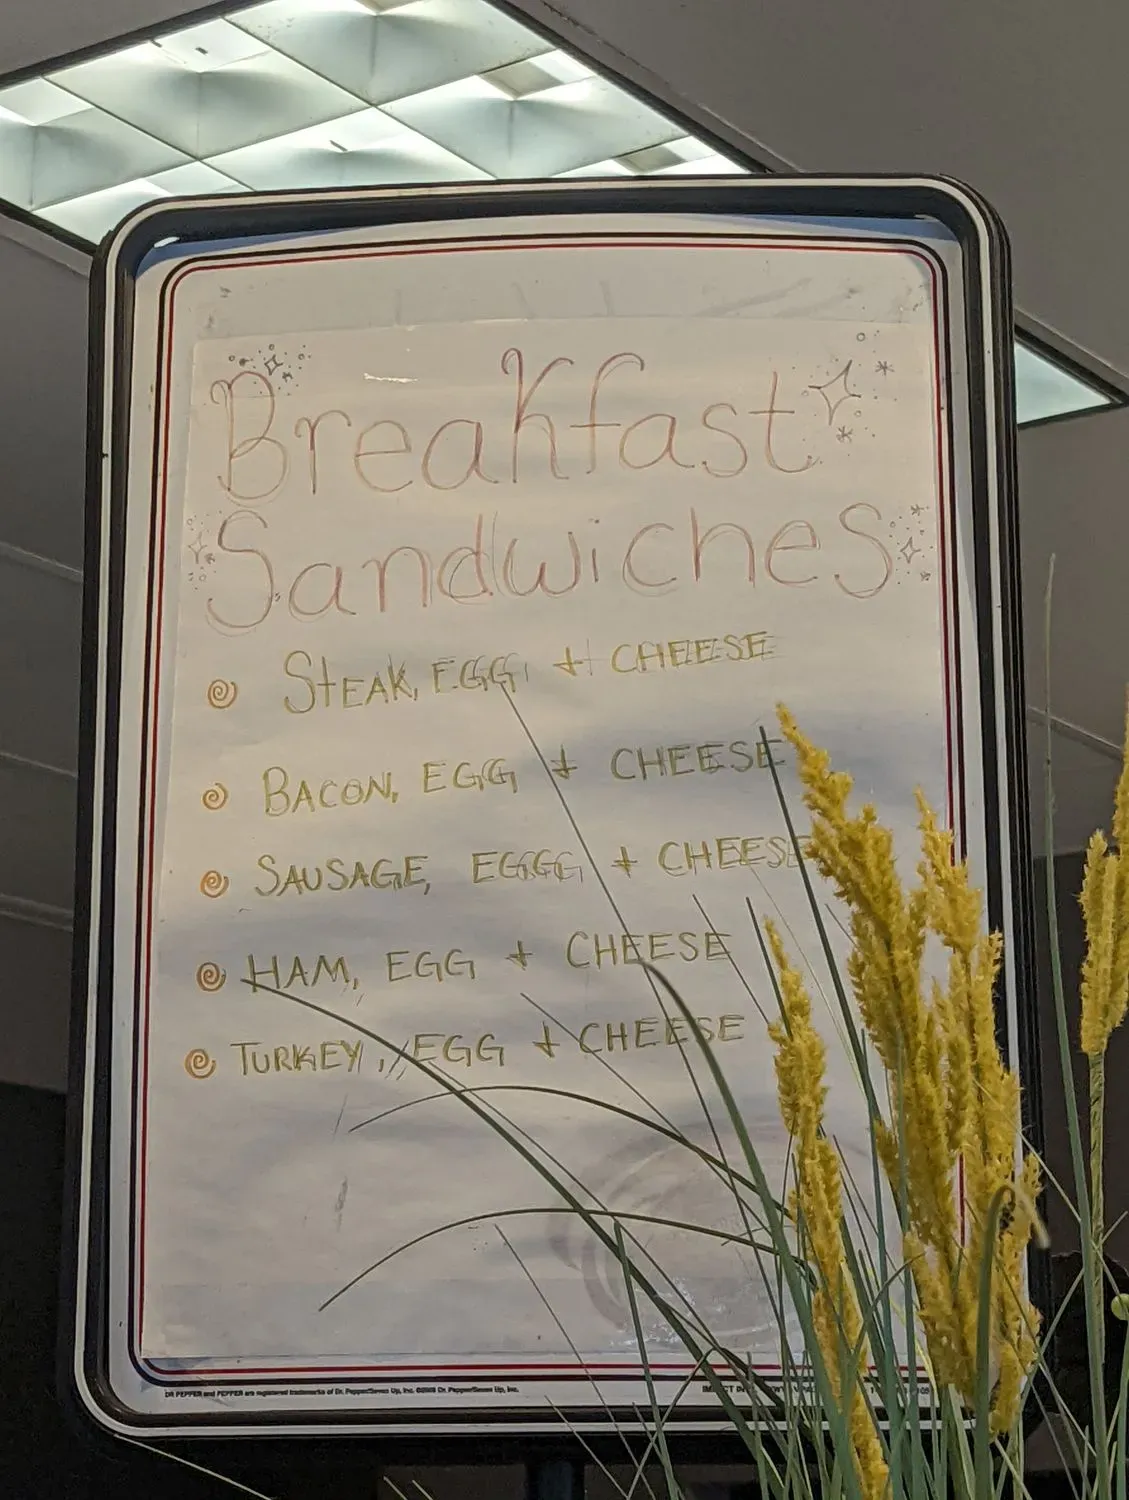 Breakfast
Sandwiches
STEAK, EGG + CHEESE
BACON, EGG + CHEESE
SAUSAGE, EGG + CHEESE
HAM, EGG + CHEESE
TURKEY, EGG + CHEESE
DR PEPPER and PEPPER are registered trademarks of Dr. Pepper/Seven Up, Inc. ©2008 Dr. Pepper/Seven Up, Inc.